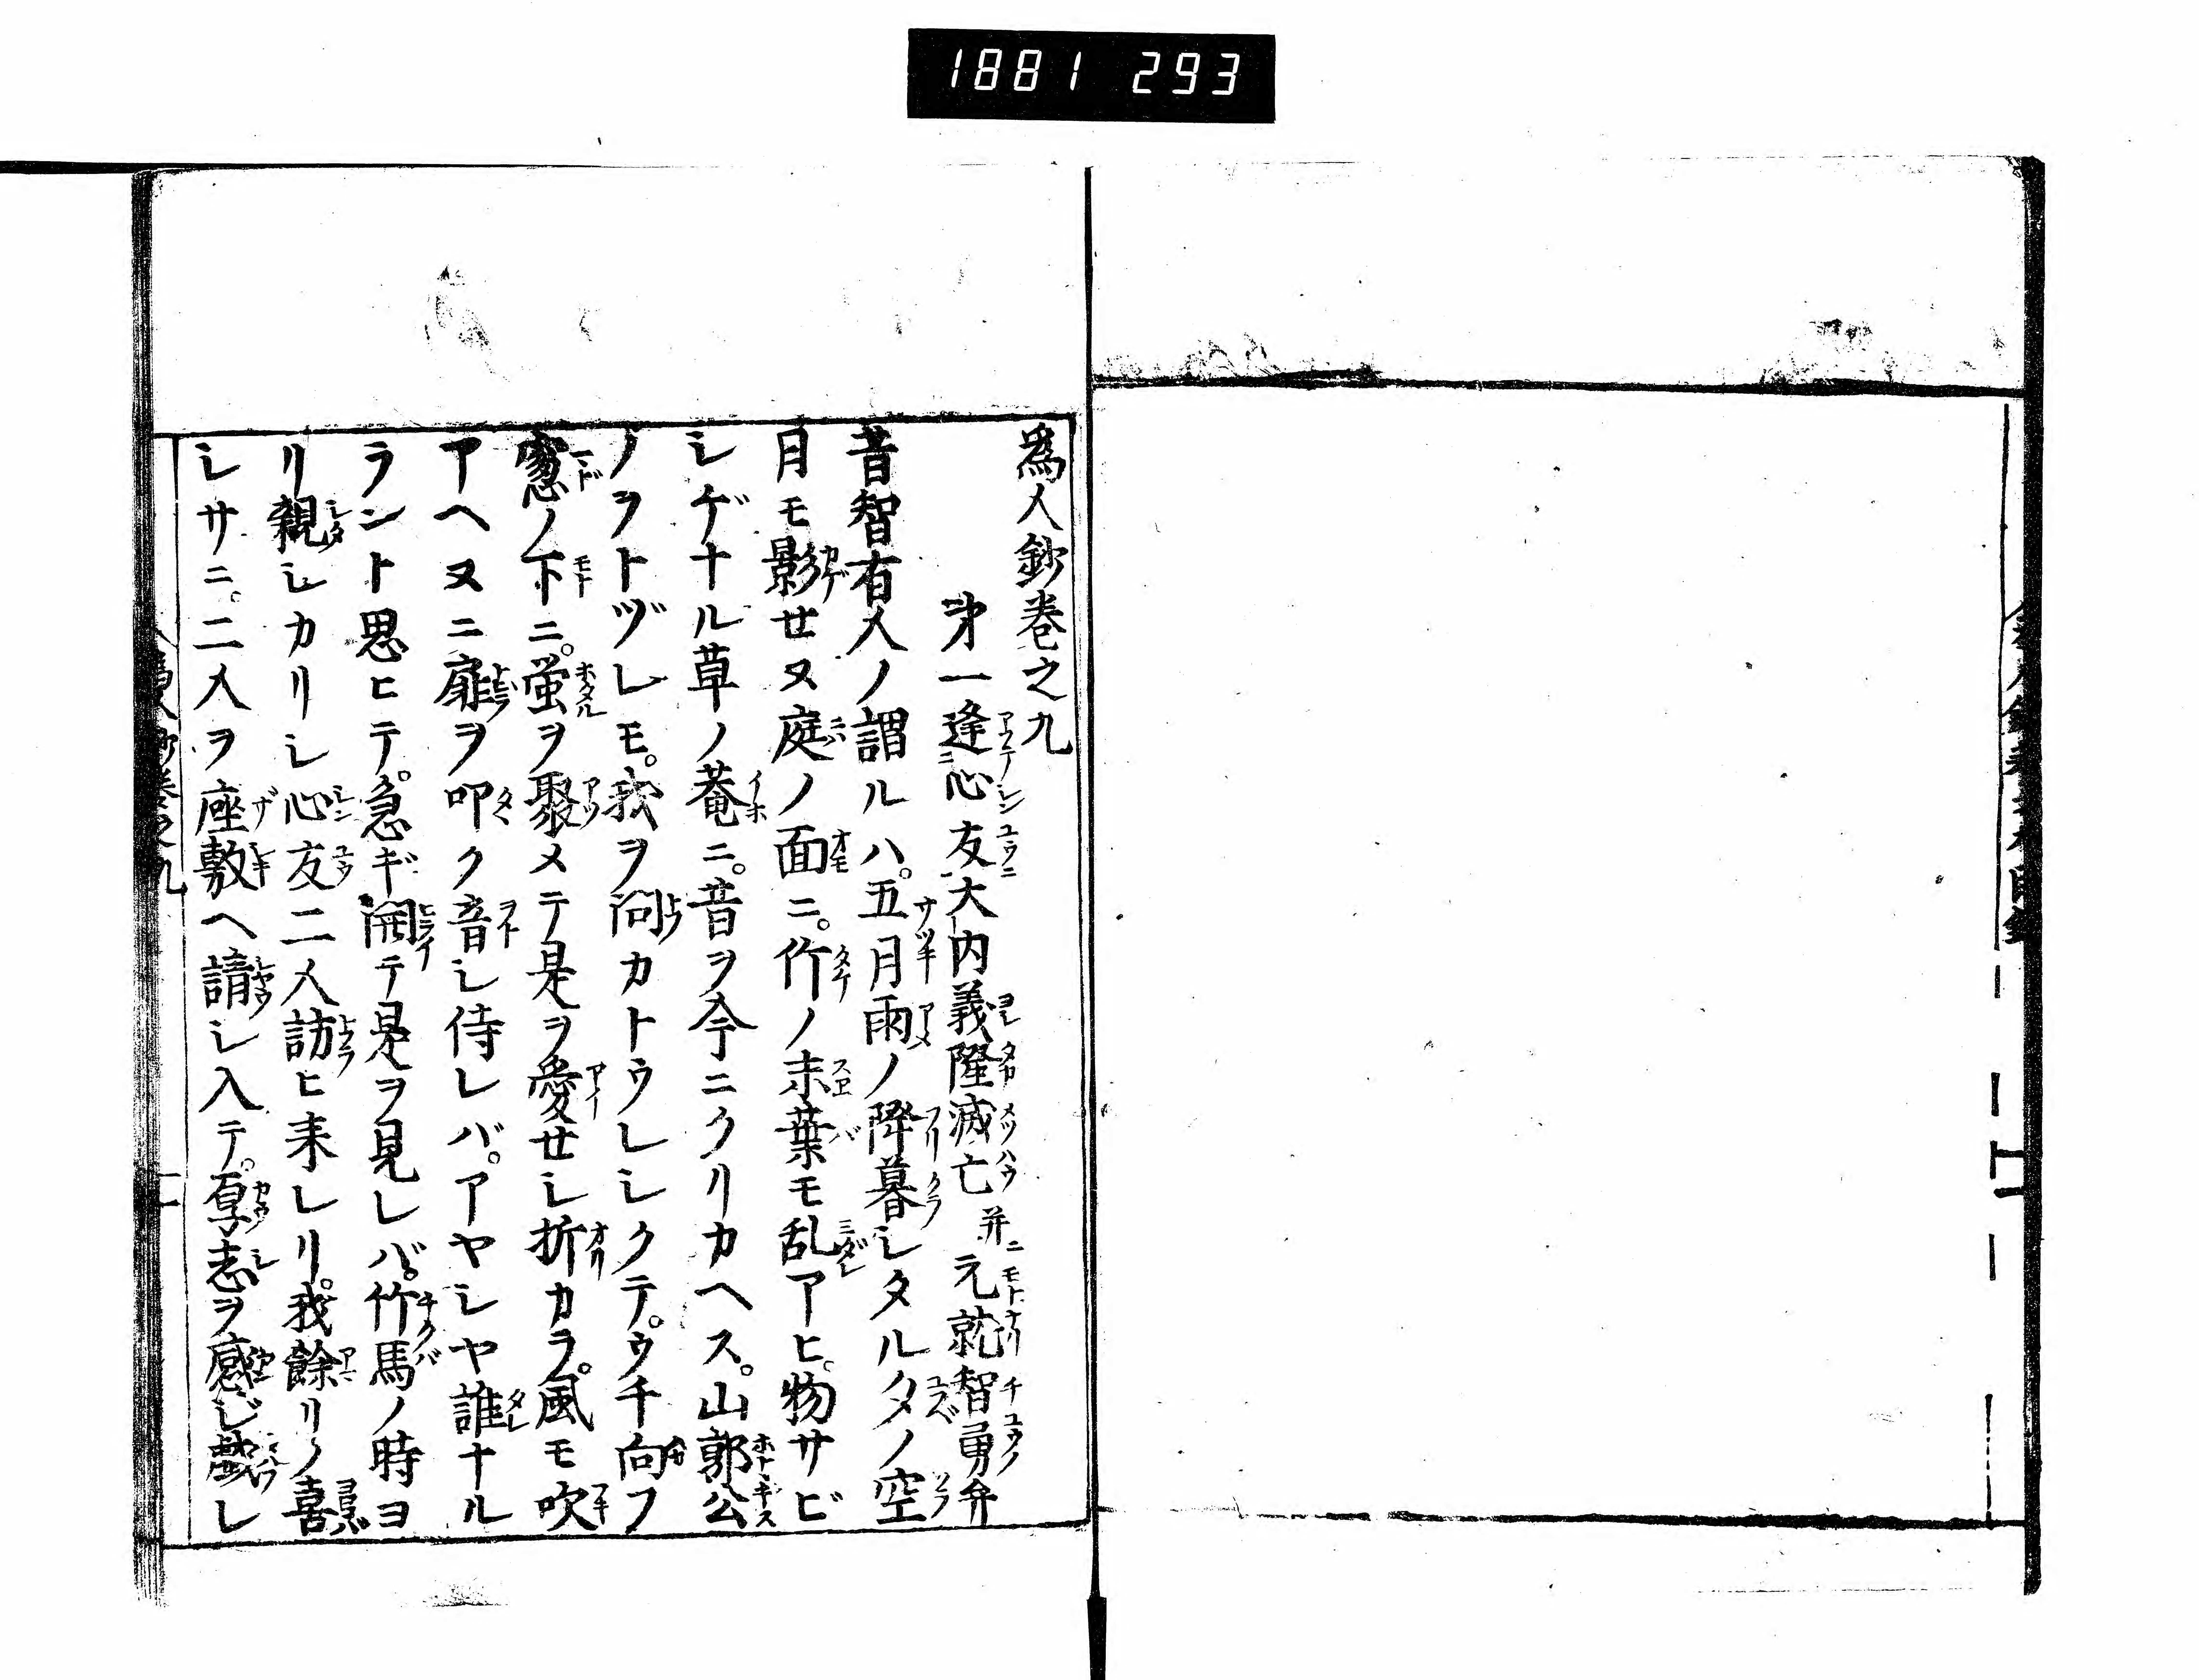 1881 293
為人鈔巻之九
第一逢心友大内義隆滅亡并ニ元就智勇弁
昔智有人ノ謂ルハ。五月雨ノ降暮シタルタノ空
月モ影せヌ庭ノ面ニ。竹ノ末葉モ乱アヒ。物サビ
シゲナル草ノ菴ニ。音ヲ今ニクリカヘス。山郭公
ノヲトヅレモ。我ヲ問カトウレシクテ。ウチ向フ
窻ノ下ニ。蛍ヲ聚メテ是ヲ愛せシ折カラ。風モ吹
アヘヌニ扉ヲ叩ク音シ侍レバ。アヤシヤ誰ナル
ラント思ヒテ。急ギ開テ是ヲ見レバ。竹馬ノ時ヨ
リ親シカリシ心友二人訪ヒ来レリ。我餘リノ喜
シサニ。二人ヲ座敷ヘ請シ入テ。厚志ヲ感ジ戯レ
為人鈔巻之九